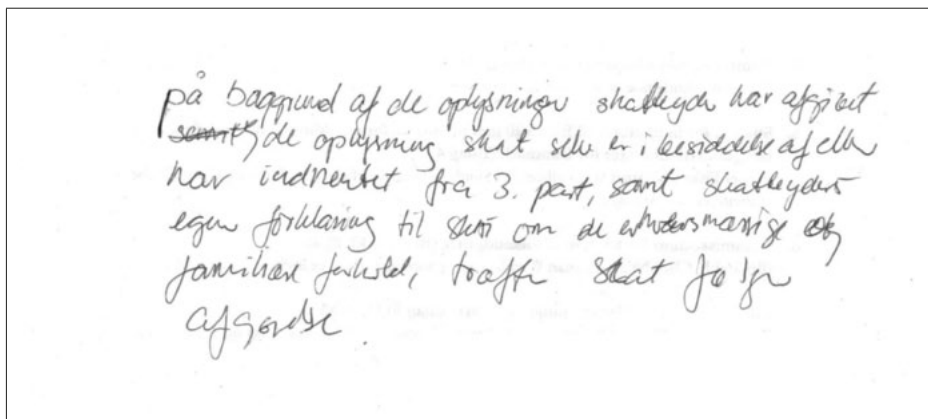 på baggrund af de oplysninger skatteyder har afgivet
samt de oplysning skat selv er i besiddelse af eller
har indhentet fra 3. part, samt skatteyders
egen forklaring til skat om de erhvervsmæssige og
familiære forhold, træffe skat følgende
afgørelse.